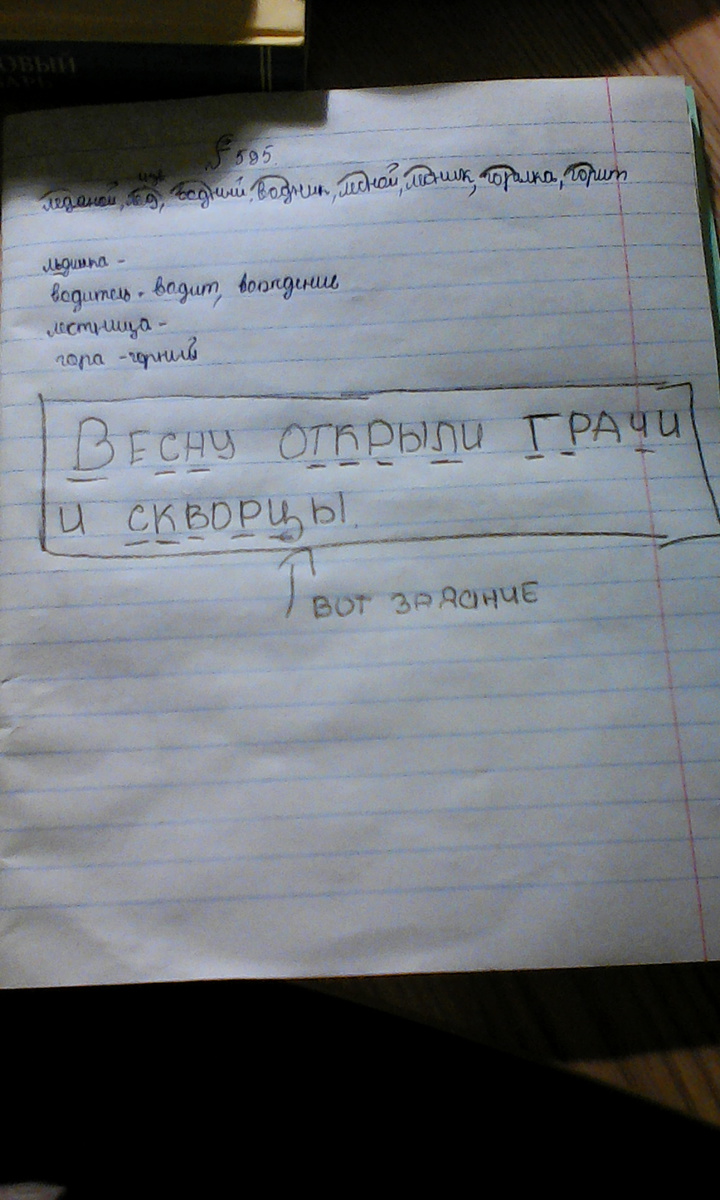 ОВЫЙ
№ 595
ледяной, лёд, водный, водник, лесной, лесник, горит
льдинка -
водитель - водит, вождение
лестница -
гора - горный
ВЕСНУ ОТКРЫЛИ ГРАЧИ
И СКВОРЦЫ.
ВОТ ЗАДАНИЕ